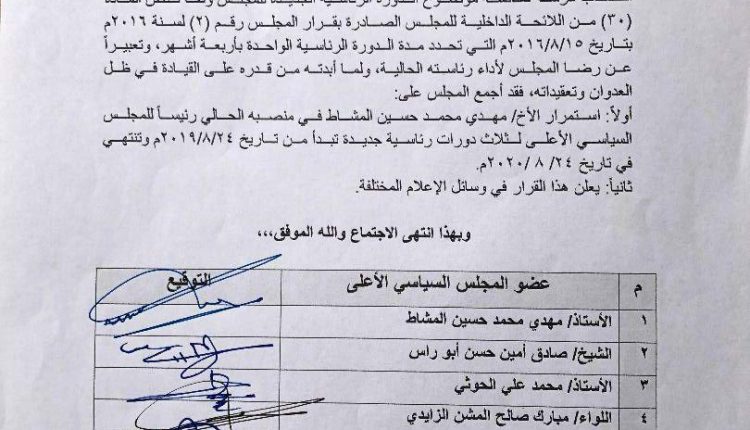 (٣٠) من اللائحة الداخلية للمجلس الصادرة بقرار المجلس رقم (٢) لسنة ٢٠١٦م
بتاريخ ٢٠١٦/٨/١٥م التي تحدد مدة الدورة الرئاسية الواحدة بأربعة أشهر، وتعبيراً
عن رضا المجلس لأداء رئاسته الحالية، ولما أبدته من قدره على القيادة في ظل
العدوان وتعقيداته، فقد أجمع المجلس على:
أولاً: استمرار الأخ/ مهدي محمد حسين المشاط في منصبه الحالي رئيساً للمجلس
السياسي الأعلى لثلاث دورات رئاسية جديدة تبدأ من تاريخ ٢٠١٩/٨/٢٤م وتنتهي
في تاريخ ٢٤/ ٨ /٢٠٢٠م.
ثانياً: يعلن هذا القرار في وسائل الإعلام المختلفة.
وبهذا انتهى الاجتماع والله الموفق،،،
م عضو المجلس السياسي الأعلى التوقيع
١ الأستاذ/ مهدي محمد حسين المشاط
٢ الشيخ/ صادق أمين حسن أبو راس
٣ الأستاذ/ محمد علي الحوثي
٤ اللواء/ مبارك صالح المشن الزايدي